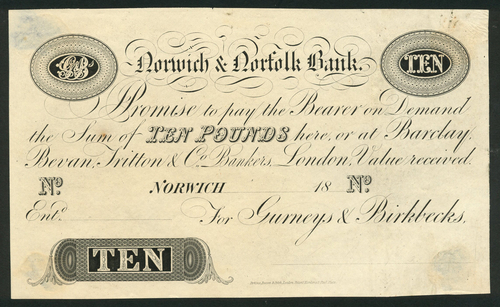 GB Norwich & Norfolk Bank. TEN
I Promise to pay the Bearer on Demand
the Sum of TEN POUNDS here, or at Barclay,
Bevan, Tritton & Co. Bankers, London, Value received.
No. NORWICH 18 No.
Entd. For Gurneys & Birkbecks,
TEN